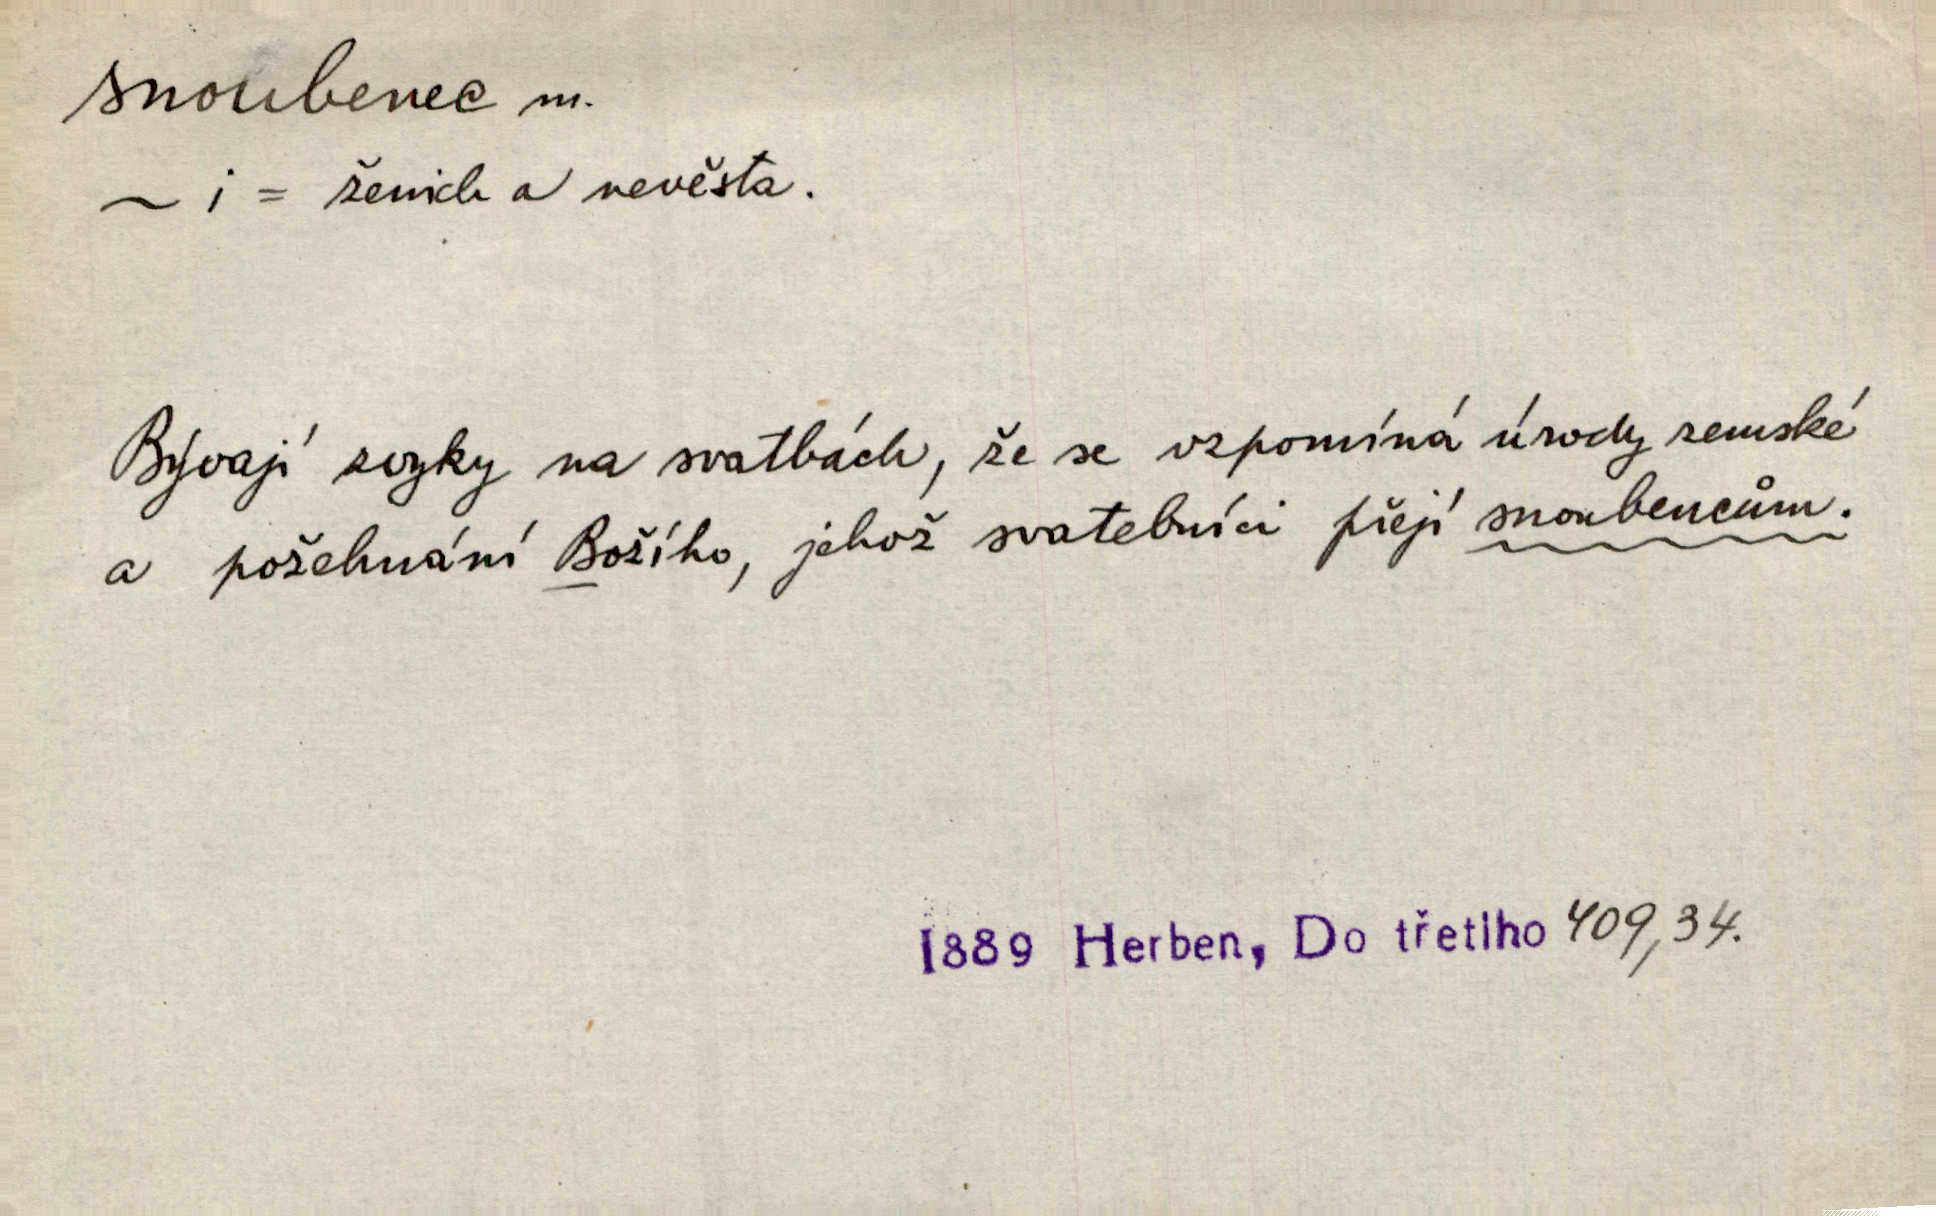 snoubenec m.
~ i = ženich a nevěsta.
Bývají zvyky na svatbách, že se vzpomíná úrody zemské
a požehnání Božího, jehož svatebníci přejí snoubencům.
1889 Herben, Do třetího 409,34.